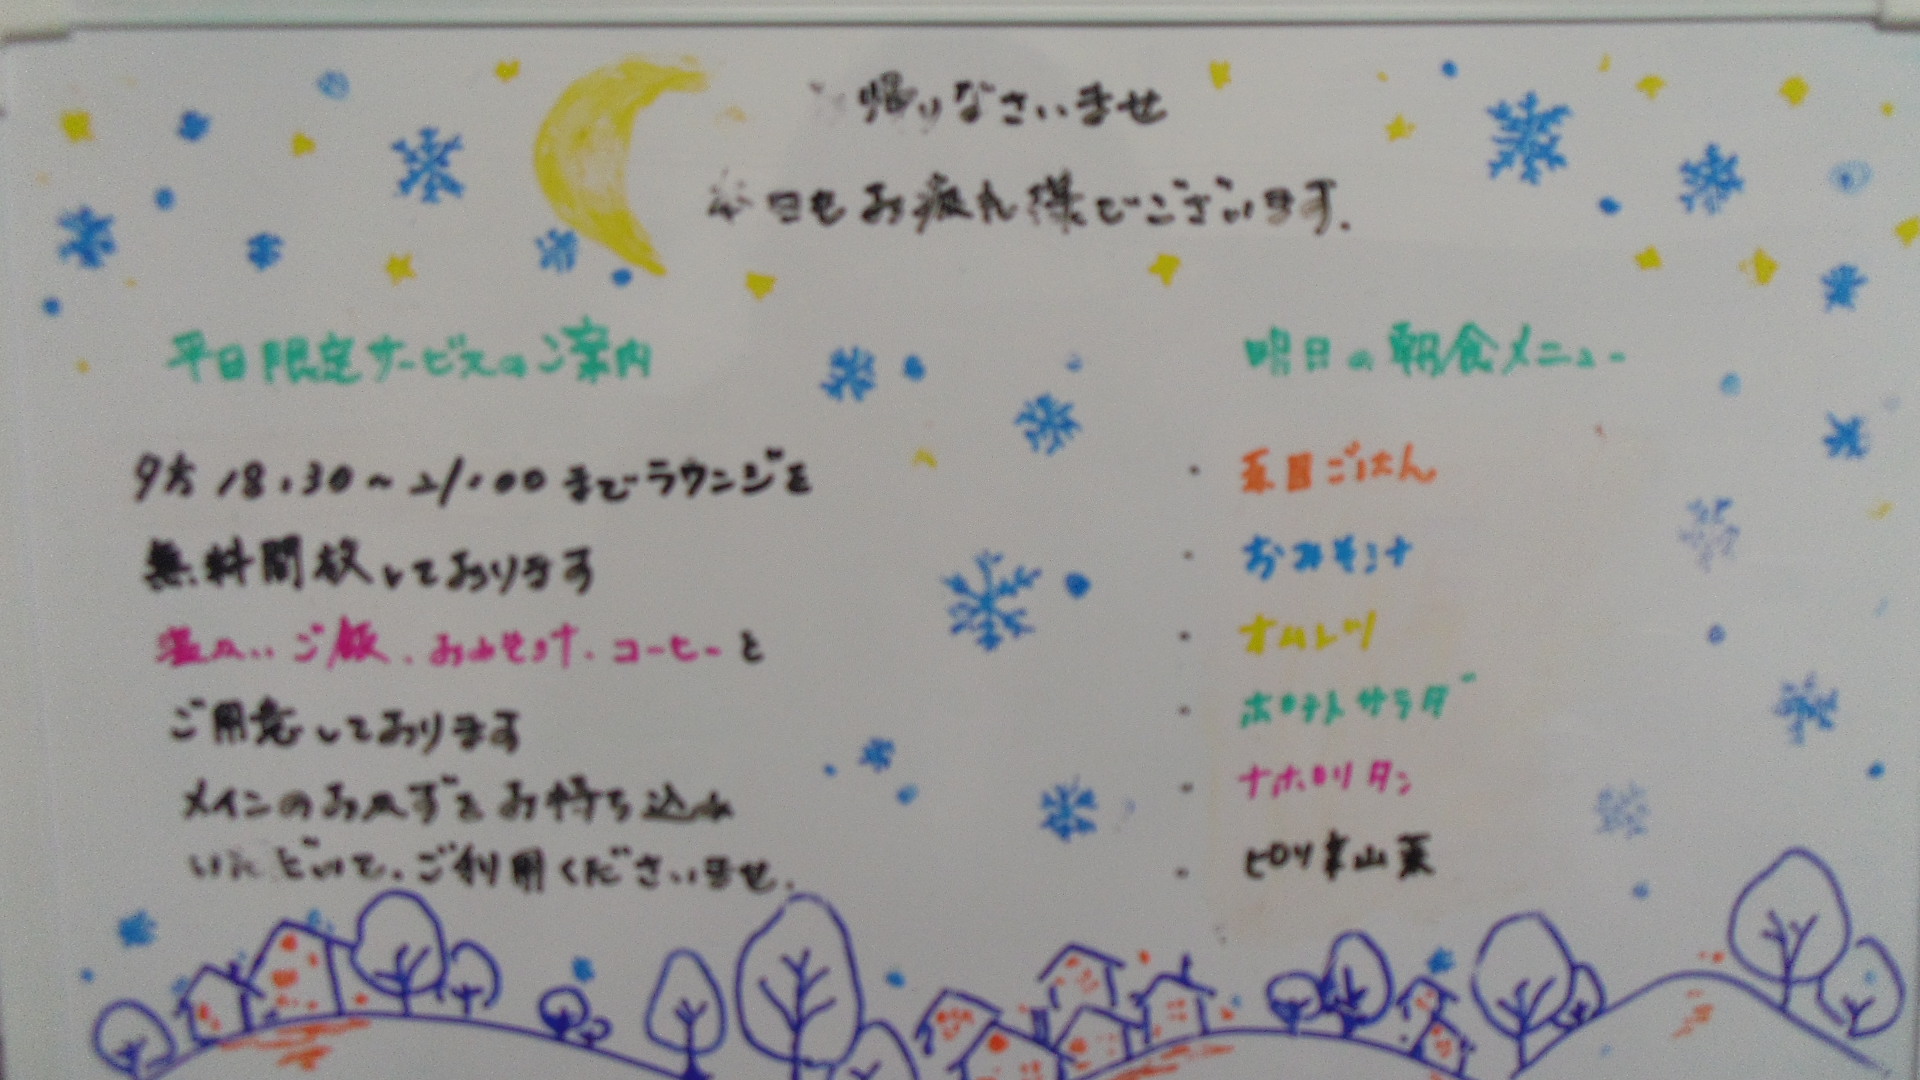 帰りなさいませ
本日もお疲れ様でございます.
平日限定サービスのご案内
夕方 18:30～21:00までラウンジを
無料開放しております
温かいご飯、おみそ汁、コーヒーと
ご用意しております
メインのおかずをお持ち込み
いただいて、ご利用くださいませ.
明日の朝食メニュー
・五目ごはん
・おみそ汁
・オムレツ
・ポテトサラダ
・ナポリタン
・ピリ辛山菜